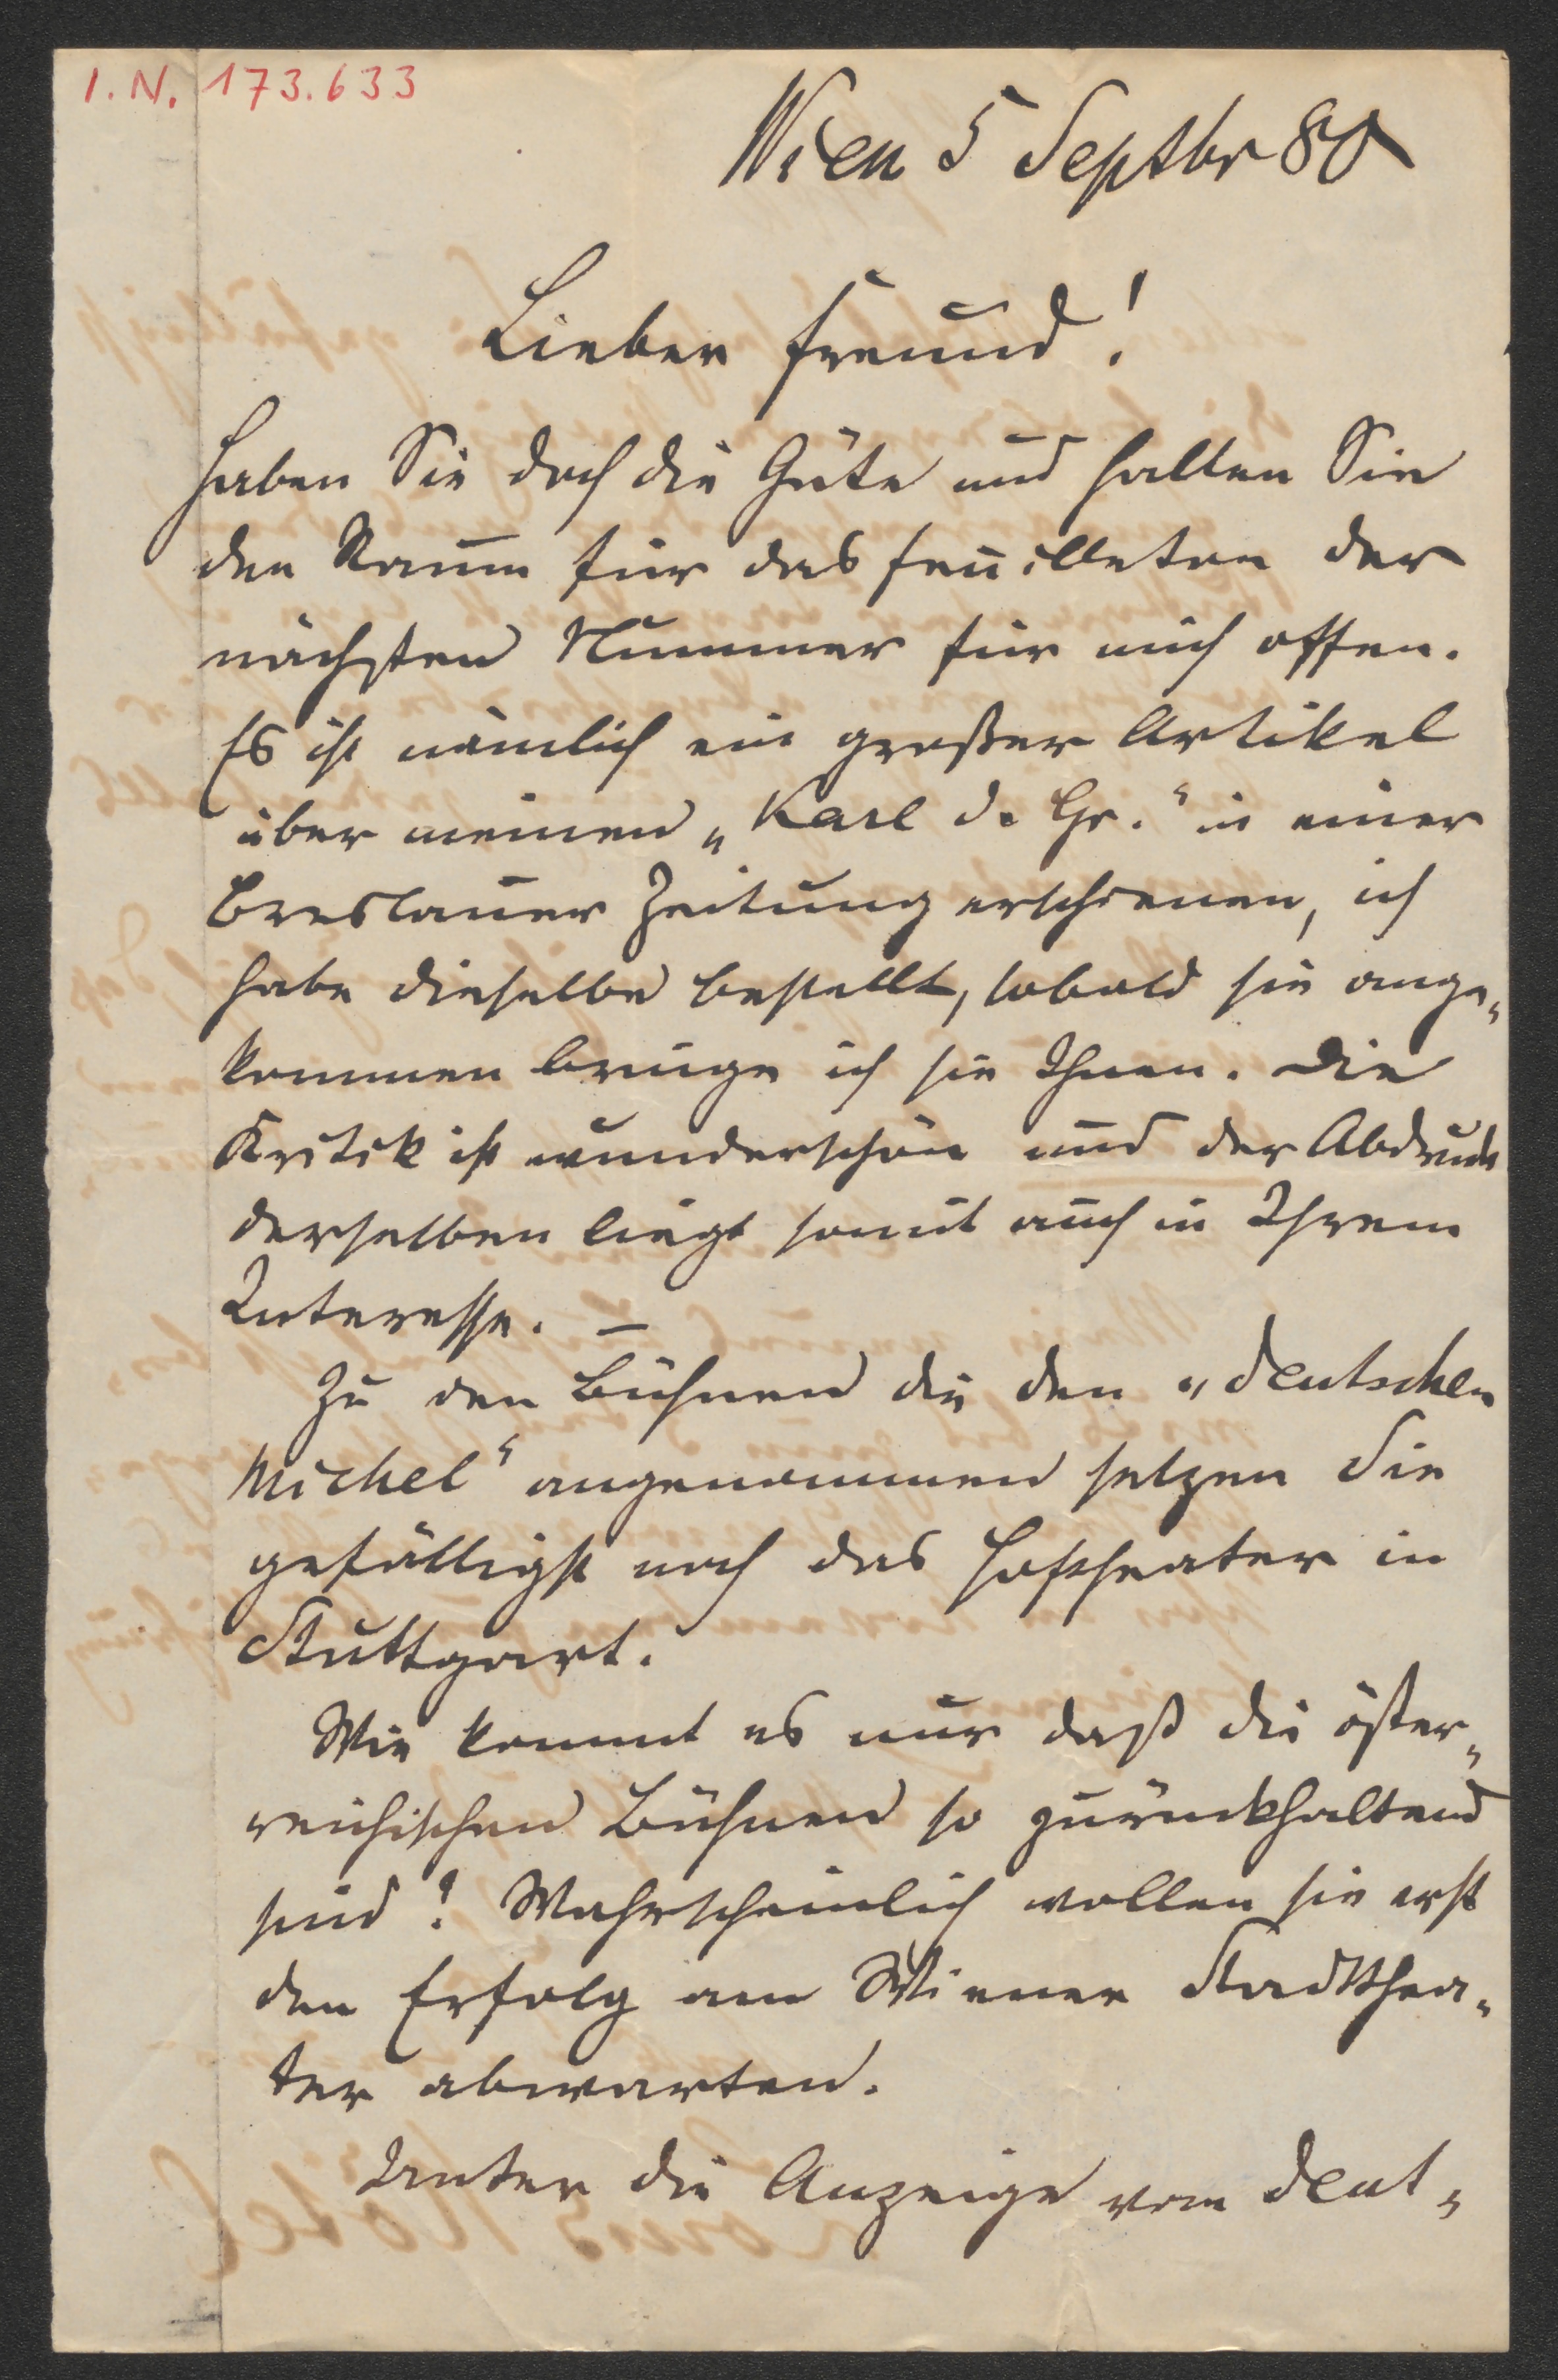 I. N. 173.633
Wien 5 Septbr 80
Lieber Freund!
Haben Sie doch die Güte und halten Sie
den Raum für das Feuilleton der
nächsten Nummer für mich offen.
Es ist nämlich ein großer Artikel
über meinen „Karl d. Gr.“ in einer
Breslauer Zeitung erschienen, ich
habe dieselbe bestellt, sobald sie ange„
kommen bringe ich sie Ihnen. Die
Kritik ist wunderschön und der Abdruck
derselben liegt somit auch in Ihrem
Interesse. –
Zu den Bühnen die den „deutschen
Michel“ angenommen setzen Sie
gefälligst noch das Hoftheater in
Stuttgart.
Wie kommt es nur daß die öster„
reichischen Bühnen so zurückhaltend
sind? Wahrscheinlich wollen sie erst
den Erfolg am Wiener Stadtthea„
ter abwarten.
Unter die Anzeige vom deut„